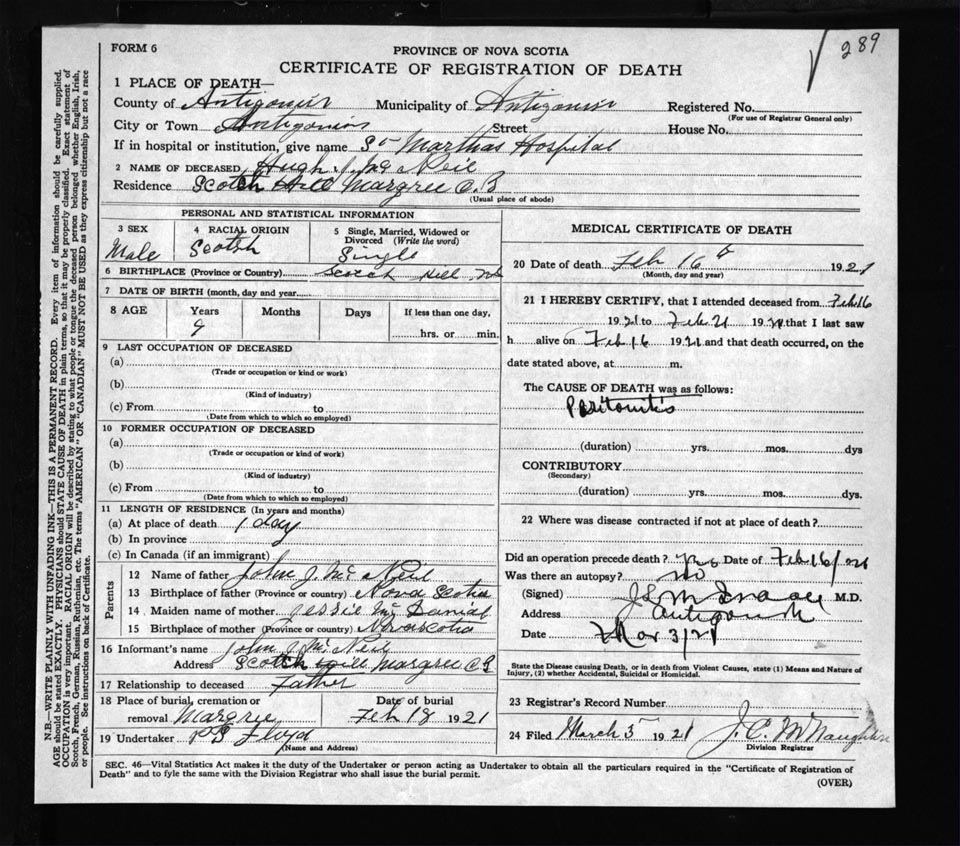 289
FORM 6
PROVINCE OF NOVA SCOTIA
CERTIFICATE OF REGISTRATION OF DEATH
1 PLACE OF DEATH—
County of Antigonish Municipality of Antigonish Registered No.
(For use of Registrar General only)
City or Town Antigonish Street House No.
If in hospital or institution, give name St Marthas Hospital
2 NAME OF DECEASED Hugh J. Mc Neil
Residence Scotch Hill Margree C. B
(Usual place of abode)
PERSONAL AND STATISTICAL INFORMATION
3 SEX 4 RACIAL ORIGIN 5 Single, Married, Widowed or Divorced (Write the word)
Male Scotch Single
6 BIRTHPLACE (Province or Country) Scotch Hill NS
7 DATE OF BIRTH (month, day and year
8 AGE Years Months Days If less than one day,
9 hrs. or min.
9 LAST OCCUPATION OF DECEASED
(a)
(Trade or occupation or kind or work)
(b)
(Kind of industry)
(c) From to
(Date from which to which so employed)
10 FORMER OCCUPATION OF DECEASED
(a)
(Trade or occupation or kind of work)
(b)
(Kind of industry)
(c) From to
(Date from which to which so employed)
11 LENGTH OF RESIDENCE (In years and months)
(a) At place of death 1 day
(b) In province
(c) In Canada (if an immigrant)
Parents
12 Name of father John J. Mc Neil
13 Birthplace of father (Province or country) Nova Scotia
14 Maiden name of mother Jessie Mc Danial
15 Birthplace of mother (Province or country) Nova scotia
16 Informant's name John J. Mc Neil
Address Scotch Hill Margree C B
17 Relationship to deceased Father
18 Place of burial, cremation or removal Margree Date of burial Feb 18 1921
19 Undertaker Floyd
(Name and Address)
MEDICAL CERTIFICATE OF DEATH
20 Date of death Feb 16th 1921
(Month, day and year)
21 I HEREBY CERTIFY, that I attended deceased from Feb. 16
1921 to Feb. 21 1921 that I last saw
h alive on Feb 16 1921 and that death occurred, on the
date stated above, at m.
The CAUSE OF DEATH was as follows:
Peritonitis
(duration) yrs. mos. dys
CONTRIBUTORY
(Secondary)
(duration) yrs. mos. dys.
22 Where was disease contracted if not at place of death?
Did an operation precede death? Date of Feb. 16/21
Was there an autopsy? No
(Signed) M.D.
Address Antigonish
Date Mar 3/21
State the Disease causing Death, or in death from Violent Causes, state (1) Means and Nature of
Injury, (2) whether Accidental, Suicidal or Homicidal.
23 Registrar's Record Number
24 Filed March 5 1921 J. C. McNaughton
Division Registrar
SEC. 46—Vital Statistics Act makes it the duty of the Undertaker or person acting as Undertaker to obtain all the particulars required in the "Certificate of Registration of
Death" and to fyle the same with the Division Registrar who shall issue the burial permit.
(OVER)
N.B.—WRITE PLAINLY WITH UNFADING INK—THIS IS A PERMANENT RECORD. Every item of information should be carefully supplied.
AGE should be stated EXACTLY. PHYSICIANS should STATE CAUSE OF DEATH in plain terms, so that it may be properly classified. Exact statement of
OCCUPATION is very important. RACIAL ORIGIN will be described by stating to what people or tongue the deceased person belonged whether English, Irish,
Scotch, French, German, Russian, Ruthenian, etc. The terms "AMERICAN" OR "CANADIAN" MUST NOT BE USED as they express citizenship but not a race
or people. See instructions on back of Certificate.